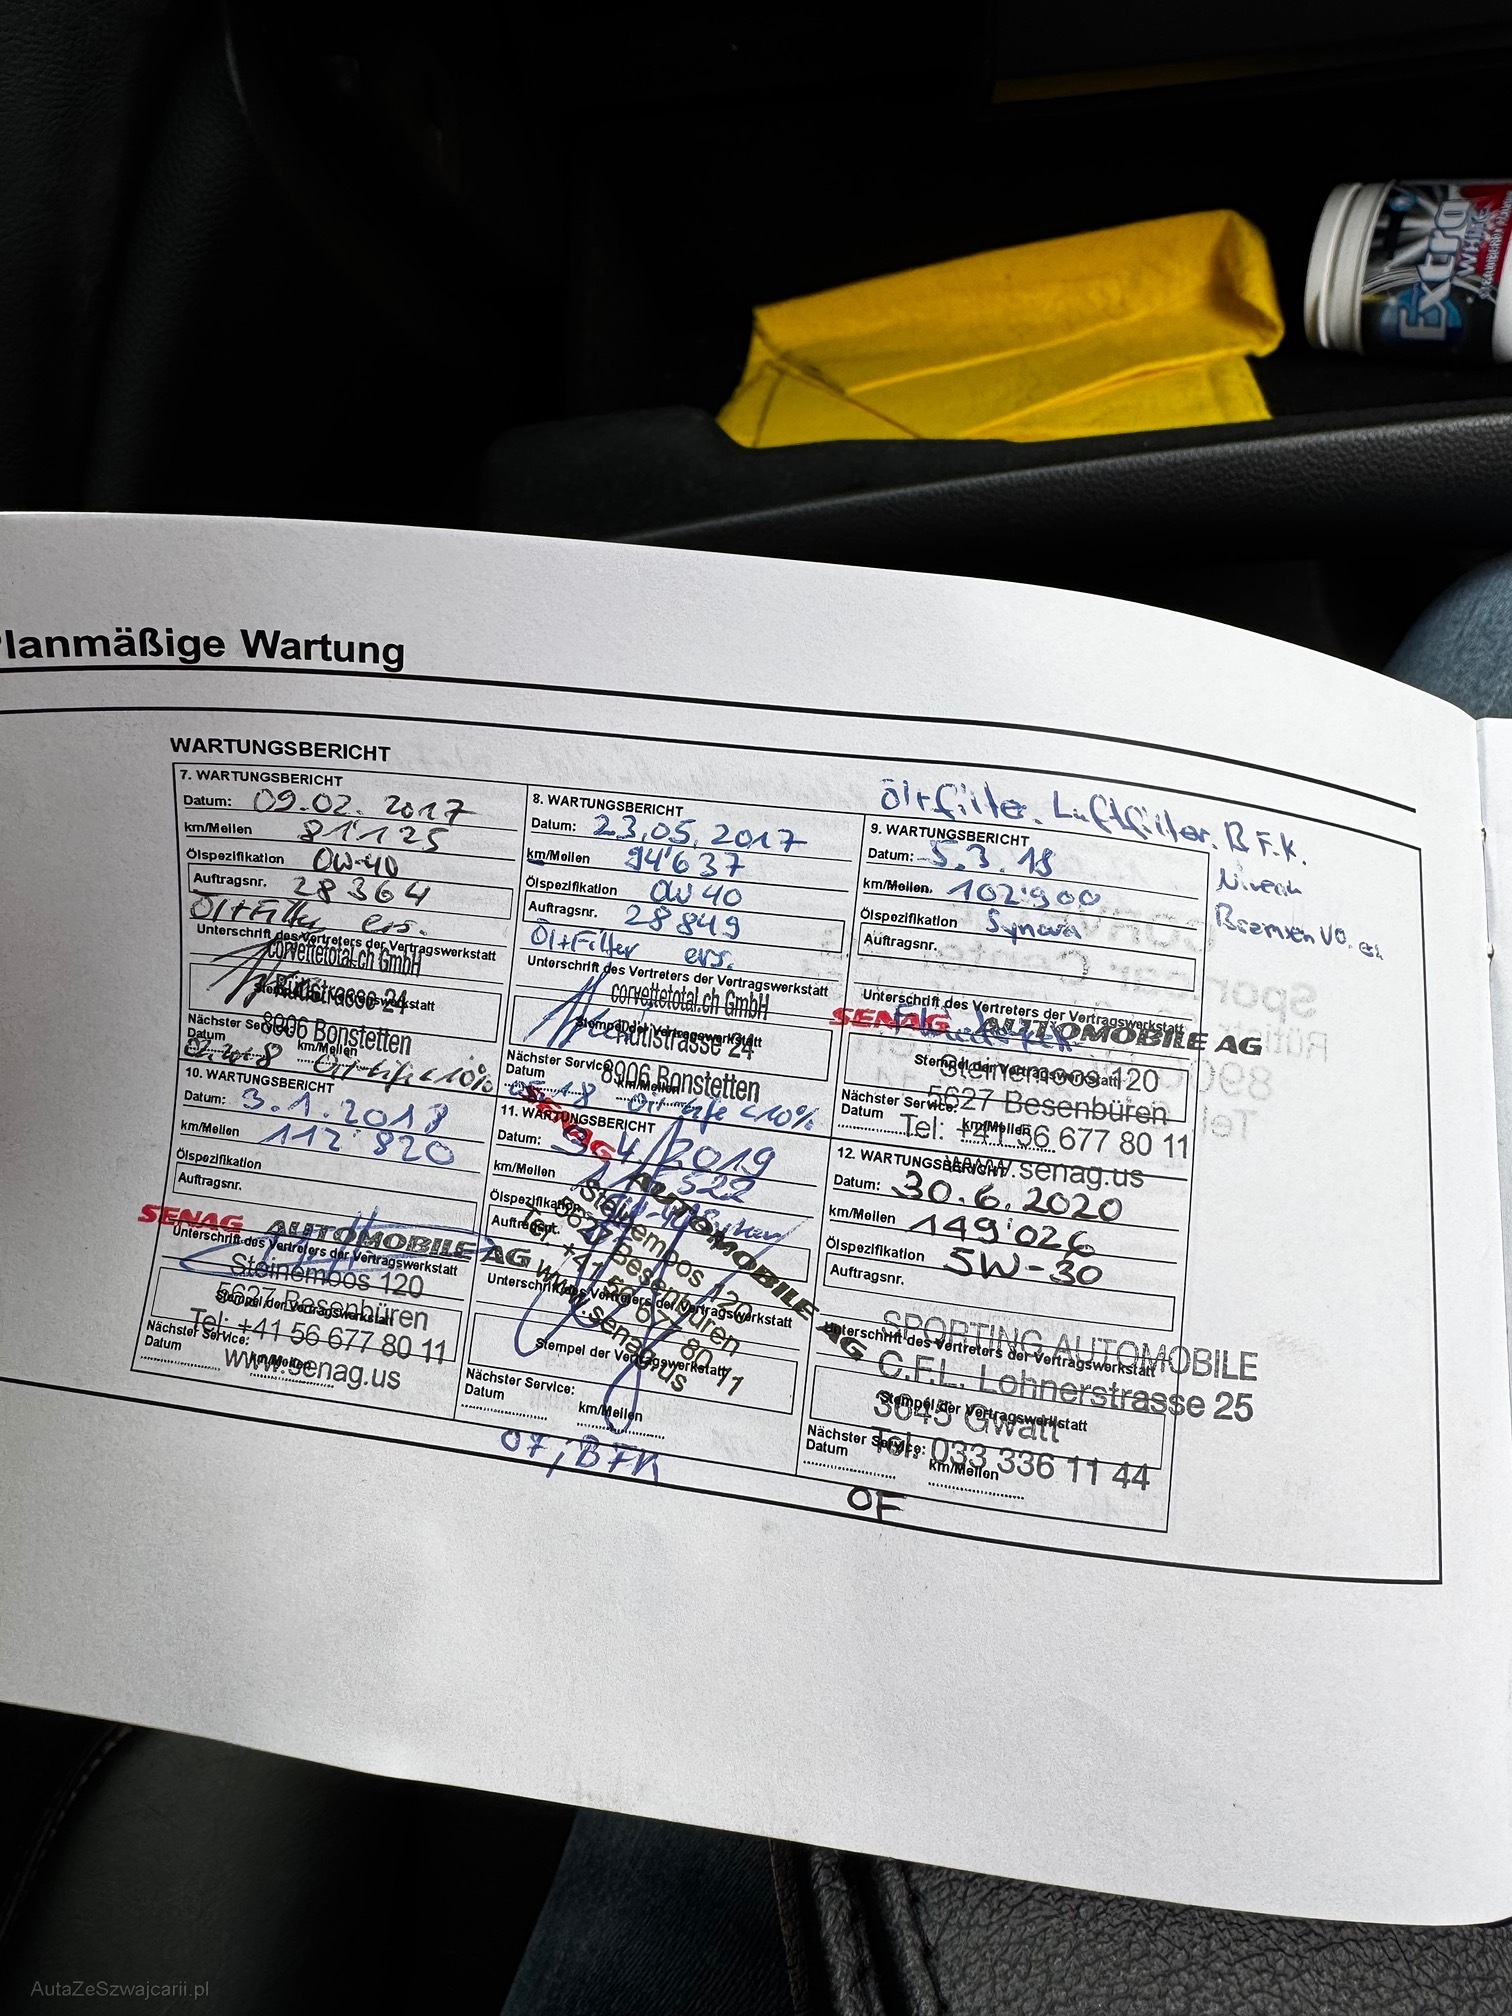 Extra
WHITE
Planmäßige Wartung
WARTUNGSBERICHT
7. WARTUNGSBERICHT
Datum: 09.02.2017
km/Meilen 81'125
Ölspezifikation 0W-40
Auftragsnr. 28364
Öl+Filter ers.
Unterschrift des Vertreters der Vertragswerkstatt
corvettetotal.ch GmbH
Rütistrasse 24
Stempel der Vertragswerkstatt
8906 Bonstetten
Nächster Service:
Datum km/Meilen
Oil-Life <10%
8. WARTUNGSBERICHT
Datum: 23.05.2017
km/Meilen 94'637
Ölspezifikation 0W40
Auftragsnr. 28849
Öl+Filter ers.
Unterschrift des Vertreters der Vertragswerkstatt
corvettetotal.ch GmbH
Stempel der Vertragswerkstatt
Rütistrasse 24
8906 Bonstetten
Nächster Service:
Datum km/Meilen
05.18 Oil-Life <10%
Öl+Filter. Luftfilter. BFK.
9. WARTUNGSBERICHT
Datum: 5.3.18
km/Meilen. 102'900
Ölspezifikation
Auftragsnr.
Bremsen VO.
Unterschrift des Vertreters der Vertragswerkstatt
SENAG AUTOMOBILE AG
Stempel der Vertragswerkstatt
Steinemoos 120
5627 Besenbüren
Nächster Service:
Datum km/Meilen
Tel: +41 56 677 80 11
www.senag.us
10. WARTUNGSBERICHT
Datum: 3.1.2018
km/Meilen 112'820
Ölspezifikation
Auftragsnr.
SENAG AUTOMOBILE AG
Unterschrift des Vertreters der Vertragswerkstatt
Steinemoos 120
5627 Besenbüren
Stempel der Vertragswerkstatt
Tel: +41 56 677 80 11
Nächster Service:
Datum km/Meilen
www.senag.us
11. WARTUNGSBERICHT
Datum: 3.4.2019
km/Meilen
Ölspezifikation
Auftragsnr.
SENAG AUTOMOBILE AG
Steinemoos 120
5627 Besenbüren
Tel: +41 56 677 80 11
www.senag.us
Unterschrift des Vertreters der Vertragswerkstatt
Stempel der Vertragswerkstatt
Nächster Service:
Datum km/Meilen
OF, BFK
12. WARTUNGSBERICHT
Datum: 30.6.2020
km/Meilen 149'026
Ölspezifikation 5W-30
Auftragsnr.
SPORTING AUTOMOBILE
Unterschrift des Vertreters der Vertragswerkstatt
C.F.L. Lohnerstrasse 25
Stempel der Vertragswerkstatt
3645 Gwatt
Nächster Service:
Tel. 033 336 11 44
Datum km/Meilen
OF
AutaZeSzwajcarii.pl